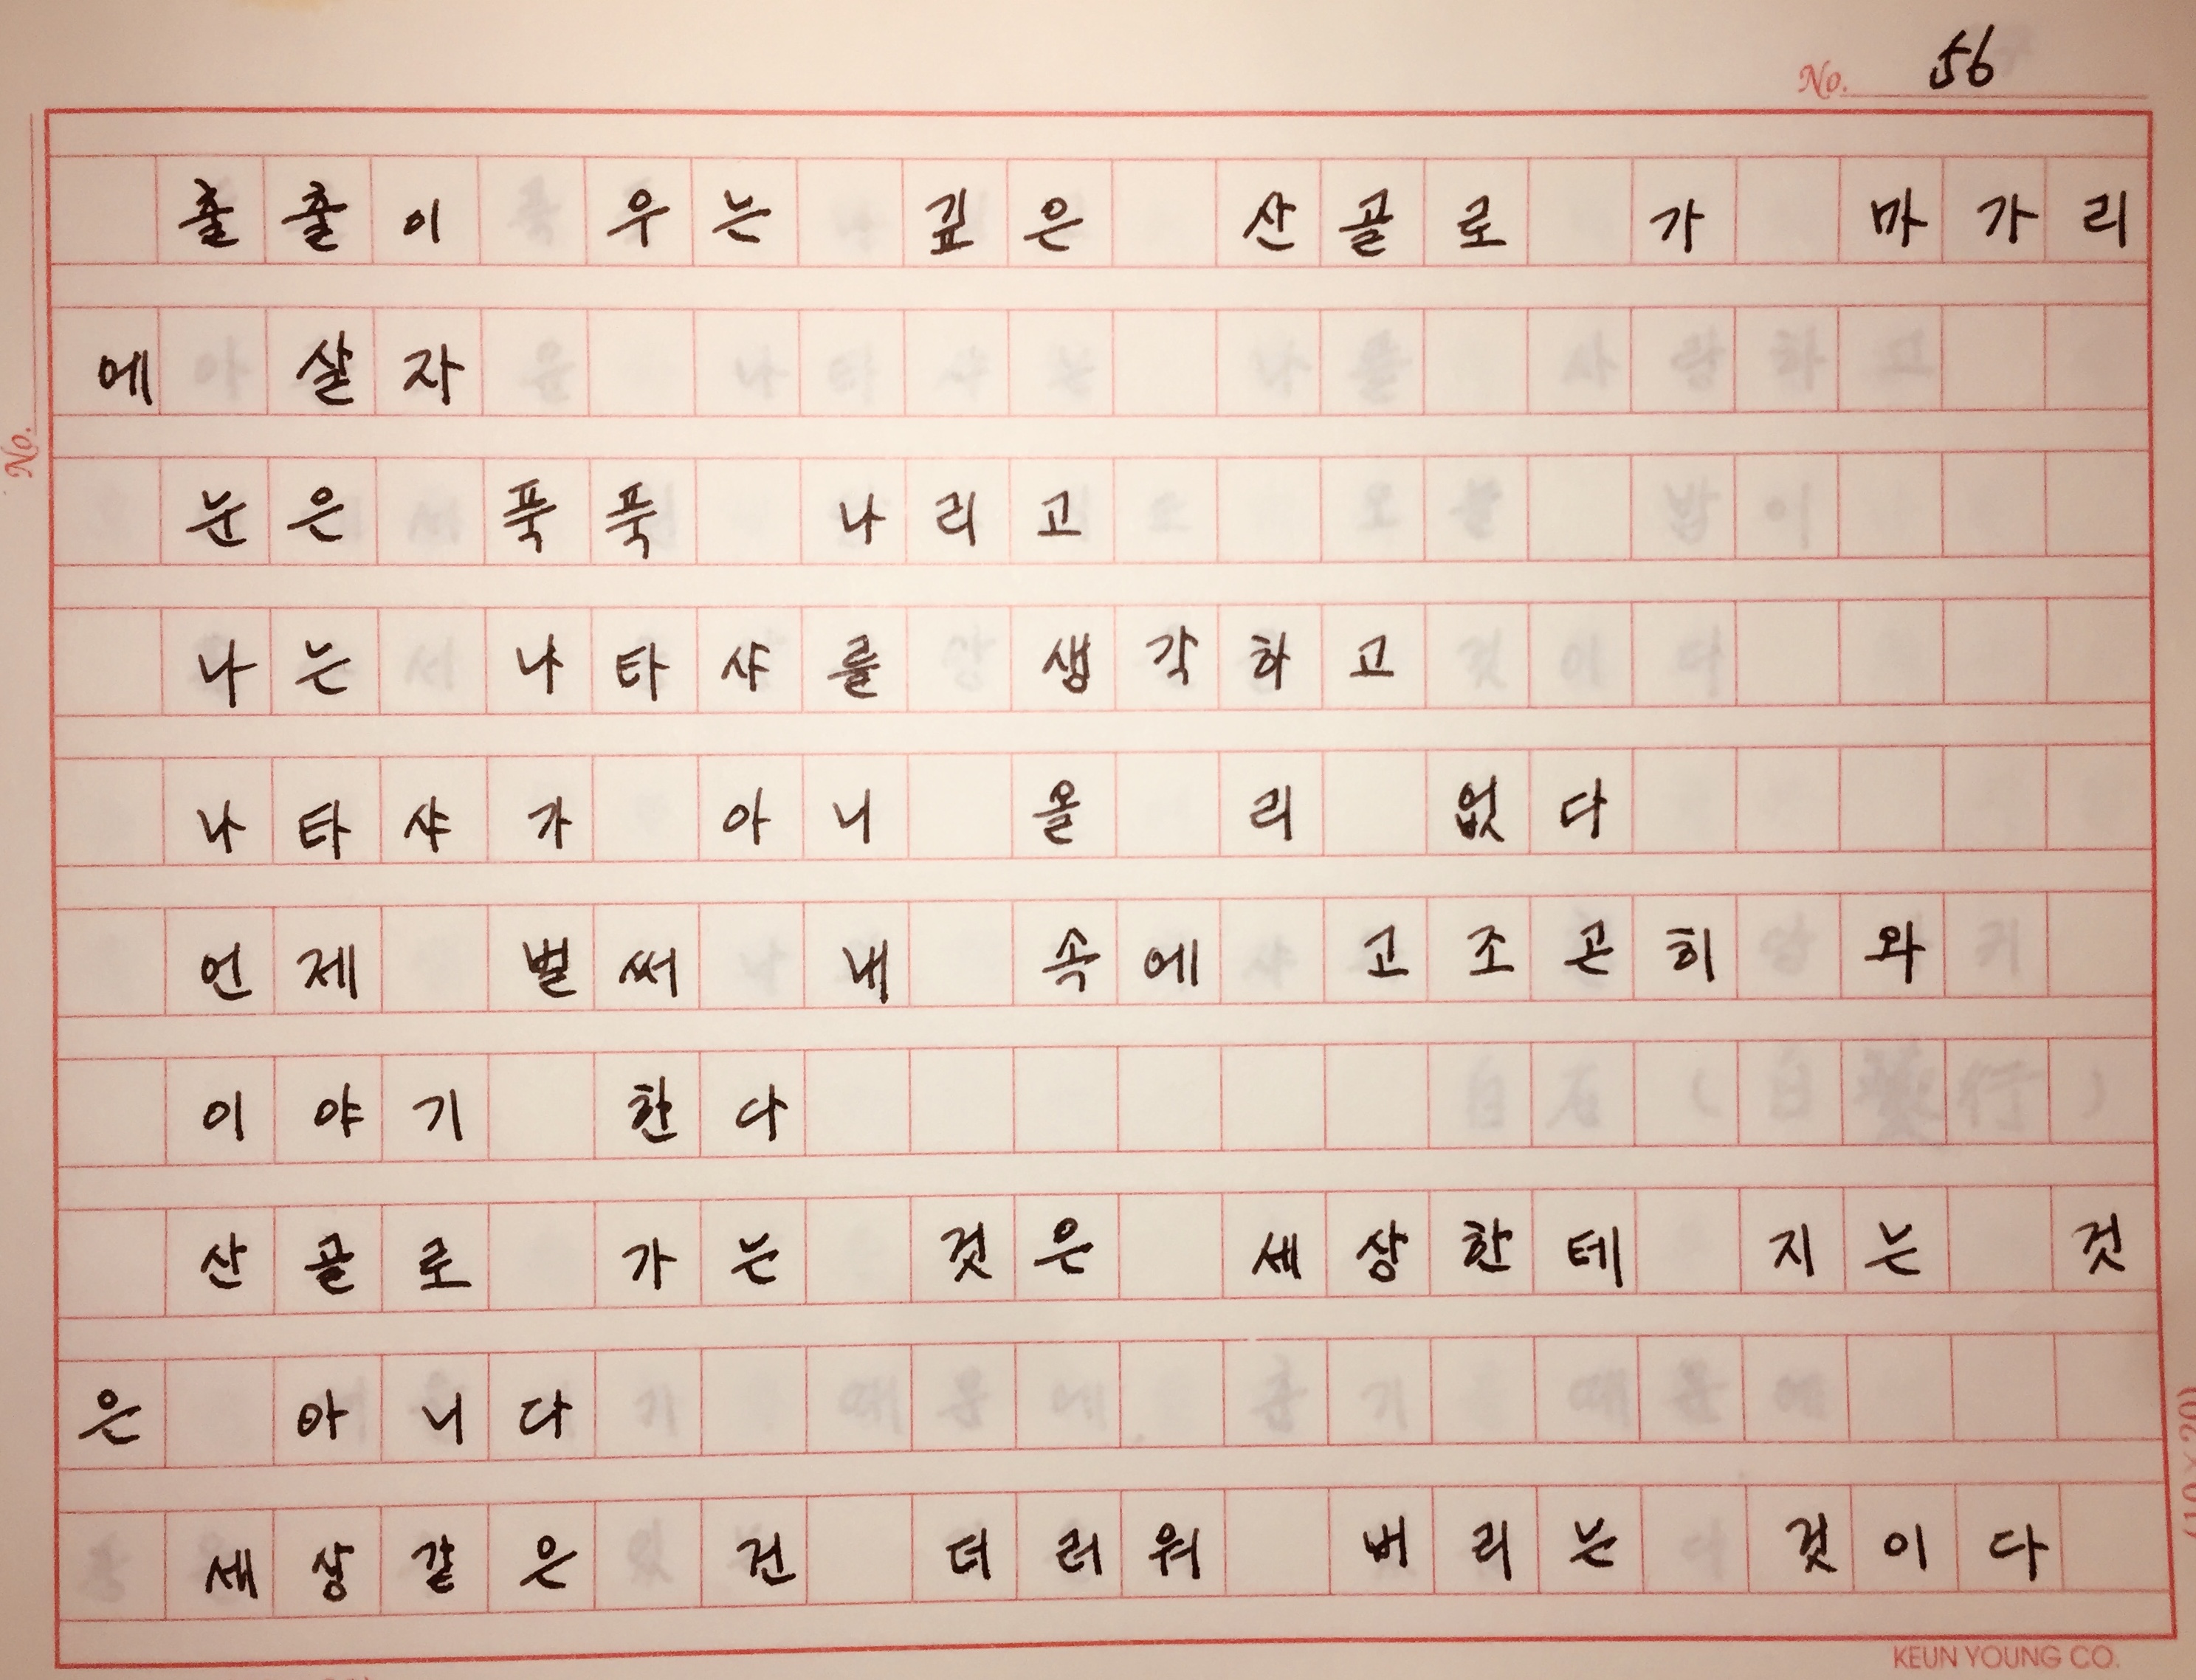 No. 56
출출이 우는 깊은 산골로 가 마가리
에 살자
눈은 푹푹 나리고
나는 나타샤를 생각하고
나타샤가 아니 올 리 없다
언제 벌써 내 속에 고조곤히 와
이야기 한다
산골로 가는 것은 세상한테 지는 것
은 아니다
세상같은 건 더러워 버리는 것이다
No.
(10×20)
KEUN YOUNG CO.